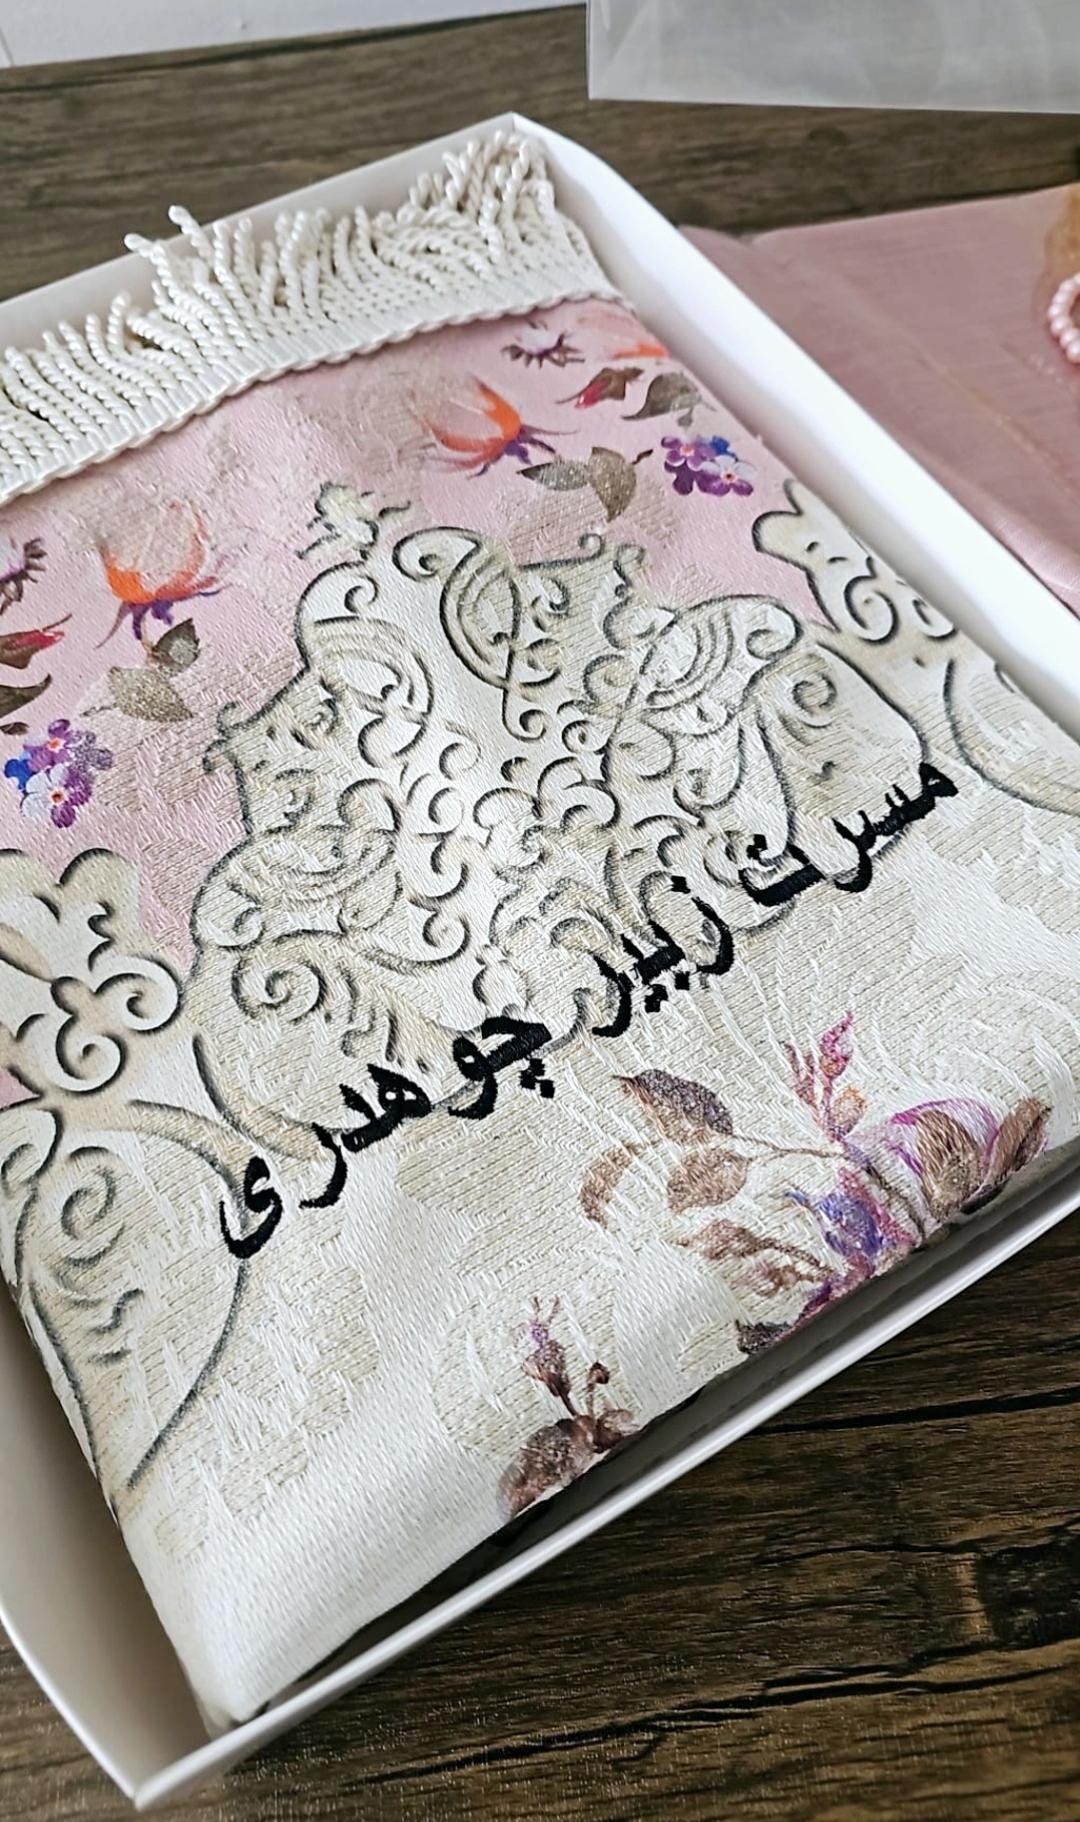 مسرت زبیر چوهدری